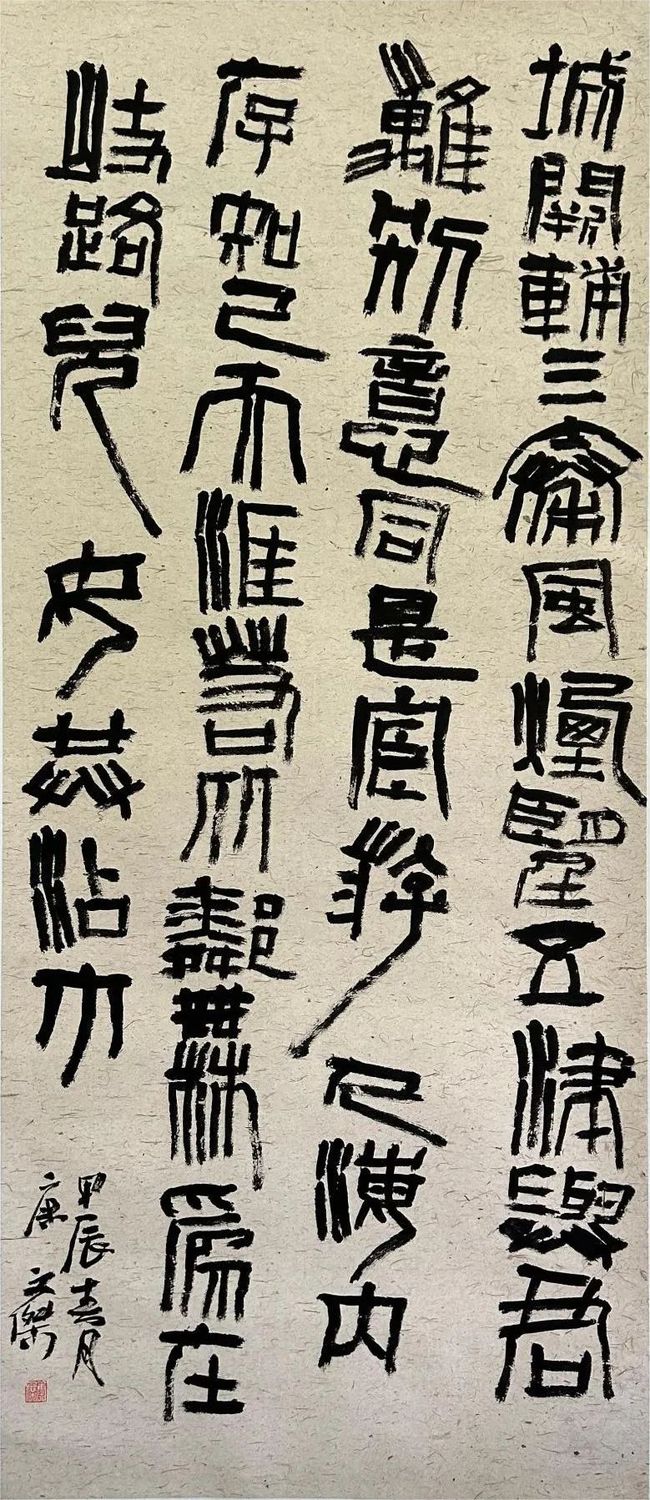 城闕輔三秦風煙朢五津與君
離別意同是宦游人海內
存知己天涯若比鄰無爲在
岐路兒女共沾巾
甲辰春月
康文傑